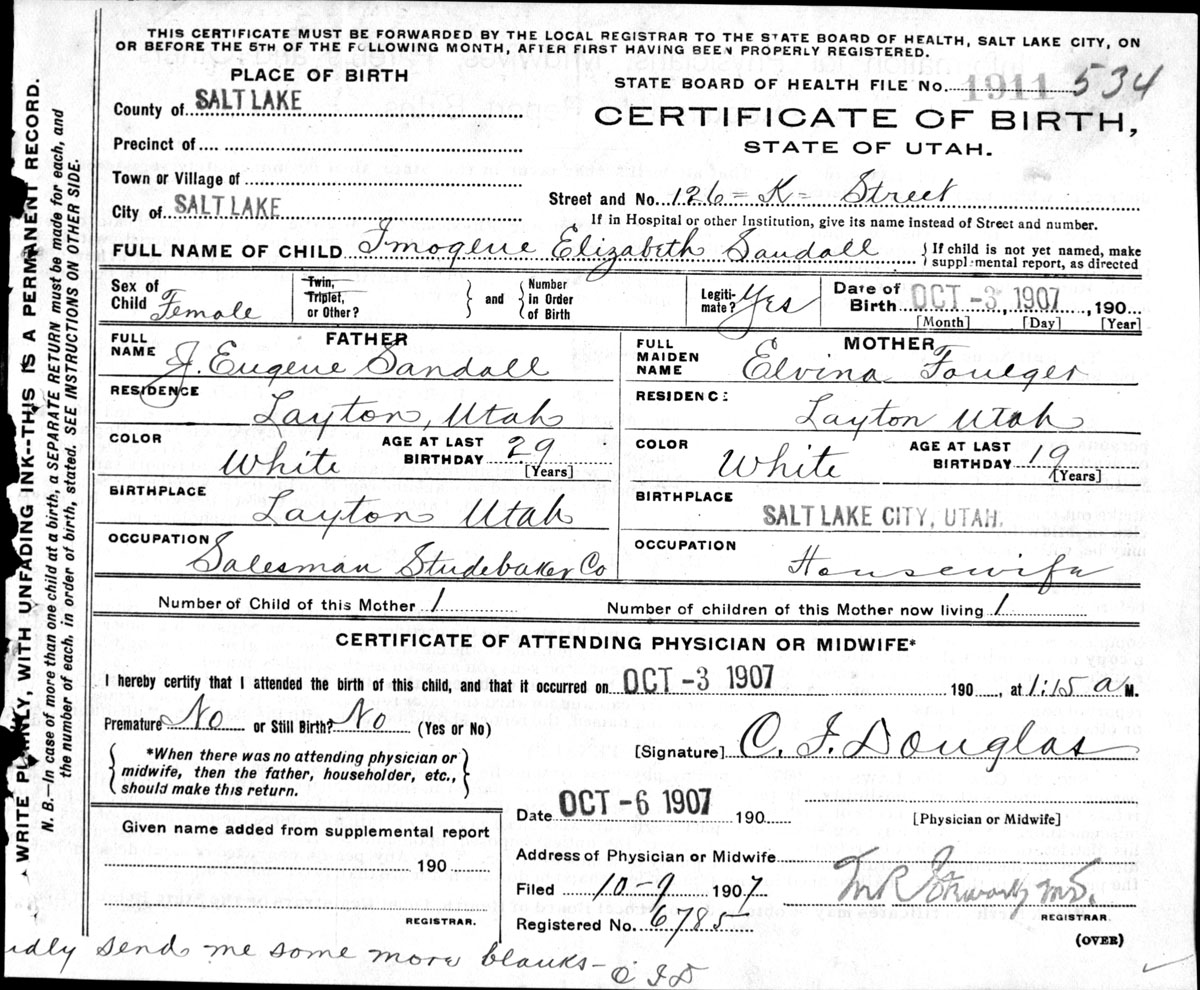 THIS CERTIFICATE MUST BE FORWARDED BY THE LOCAL REGISTRAR TO THE STATE BOARD OF HEALTH, SALT LAKE CITY, ON
OR BEFORE THE 5TH OF THE FOLLOWING MONTH, AFTER FIRST HAVING BEEN PROPERLY REGISTERED.
PLACE OF BIRTH
STATE BOARD OF HEALTH FILE No. 1911 534
County of SALT LAKE
CERTIFICATE OF BIRTH,
Precinct of
STATE OF UTAH.
Town or Village of
Street and No. 126 = K = Street
City of SALT LAKE
If in Hospital or other Institution, give its name instead of Street and number.
FULL NAME OF CHILD Imogene Elizabeth Sandall {If child is not yet named, make
supplemental report, as directed
Sex of Child Female
Twin, Triplet, or Other? } and { Number in Order of Birth
Legitimate? Yes
Date of Birth OCT -3 1907, 190
[Month] [Day] [Year]
FATHER
FULL NAME J. Eugene Sandall
RESIDENCE
Layton, Utah
COLOR White AGE AT LAST BIRTHDAY 29 [Years]
BIRTHPLACE
Layton Utah
OCCUPATION
Salesman Studebaker Co
MOTHER
FULL MAIDEN NAME Elvina Foulger
RESIDENCE
Layton Utah
COLOR White AGE AT LAST BIRTHDAY 19 [Years]
BIRTHPLACE
SALT LAKE CITY, UTAH.
OCCUPATION
Housewife
Number of Child of this Mother 1 Number of children of this Mother now living 1
CERTIFICATE OF ATTENDING PHYSICIAN OR MIDWIFE*
I hereby certify that I attended the birth of this child, and that it occurred on OCT -3 1907 190, at 1:15 a M.
Premature No or Still Birth? No (Yes or No)
{ *When there was no attending physician or
midwife, then the father, householder, etc.,
should make this return. }
[Signature] C. F. Douglas
Date OCT -6 1907 190
[Physician or Midwife]
Given name added from supplemental report
190
REGISTRAR.
Address of Physician or Midwife
Filed 10-9 1907
M.D.
REGISTRAR.
Registered No. 6785
(OVER)
send me some more blanks -
WRITE PLAINLY, WITH UNFADING INK--THIS IS A PERMANENT RECORD.
N. B.—In case of more than one child at a birth, a SEPARATE RETURN must be made for each, and
the number of each, in order of birth, stated. SEE INSTRUCTIONS ON OTHER SIDE.